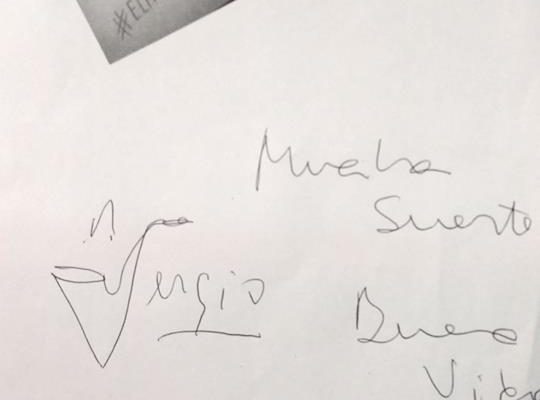 #EL
Mucha
Suerte
Sergio
Buena
Vida